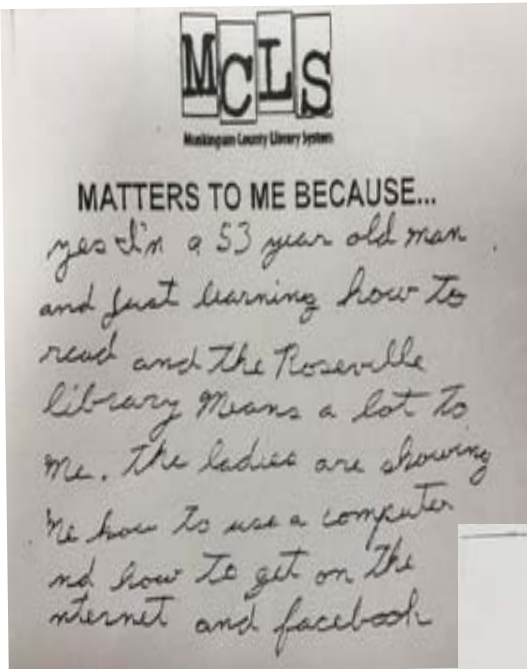 MCLS
Muskingum County Library System
MATTERS TO ME BECAUSE...
yes I'm a 53 year old man
and just learning how to
read and the Roseville
library Means a lot to
Me. The ladies are showing
Me how to use a computer
nd how to get on the
nternet and facebook